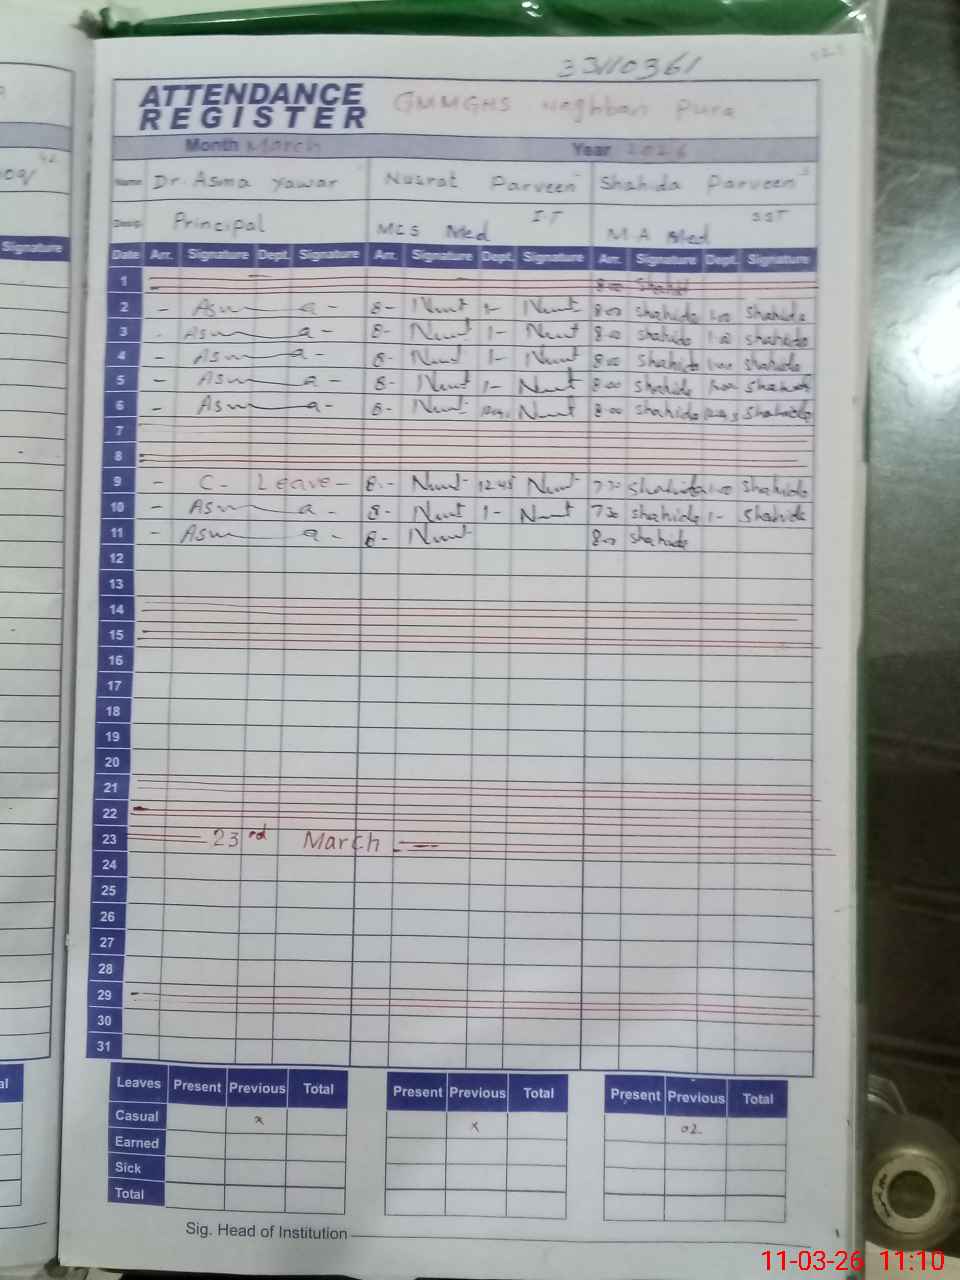 33110361
ATTENDANCE REGISTER GMMGHS Neghban Pura
Month March Year 2026
Name Dr. Asma Yawar Nusrat Parveen Shahida Parveen
Desig. Principal MCS Med I.T M.A Med SST
Date Arr. Signature Dept. Signature Arr. Signature Dept. Signature Arr. Signature Dept. Signature
1 8:00
2 - Asm a - 8- 1- 8:00 Shahida 1:00 Shahida
3 - Asm a - 8- 1- 8:00 Shahida Shahida
4 - Asm a - 8- 1- 8:00 Shahida 1:00 Shahida
5 - Asm a - 8- 1- 8:00 Shahida 1:00 Shahida
6 - Asm a - 8- 8:00 Shahida Shahida
7
8
9 - C- Leave - 8- 12:45 7:30 Shahida 1:00 Shahida
10 - Asm a - 8- 1- 7:30 Shahida 1- Shahida
11 - Asm a - 8- 8:00 Shahida
12
13
14
15
16
17
18
19
20
21
22
23 23rd March
24
25
26
27
28
29
30
31
Leaves Present Previous Total Present Previous Total Present Previous Total
Casual x x 02
Earned
Sick
Total
Sig. Head of Institution
Signature
11-03-26 11:10